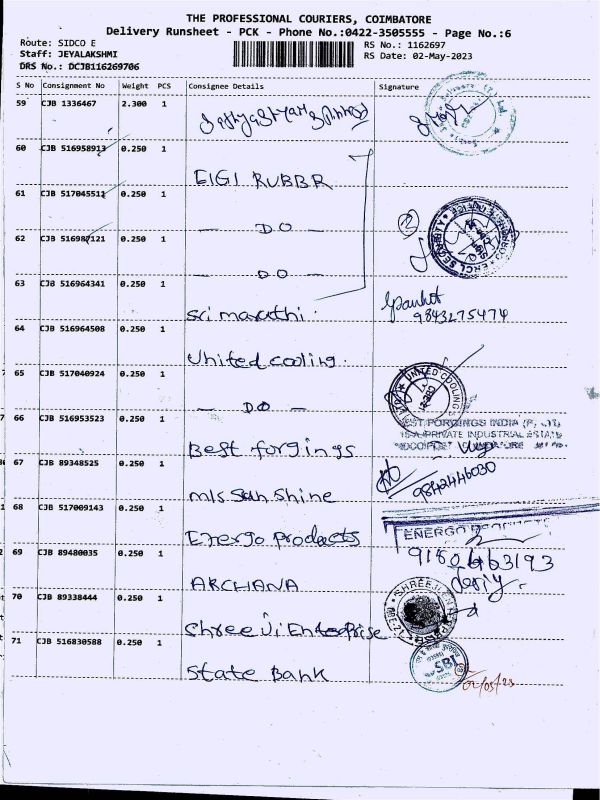 THE PROFESSIONAL COURIERS, COIMBATORE
Delivery Runsheet - PCK - Phone No.:0422-3505555 - Page No.:6
Route: SIDCO E
RS No.: 1162697
Staff: JEYALAKSHMI
RS Date: 02-May-2023
DRS No.: DCJB116269706
S No Consignment No Weight PCS Consignee Details Signature
59 CJB 1336467 2.300 1
60 CJB 516958913 0.250 1
EIGI RUBBR
61 CJB 517045512 0.250 1
— DO —
62 CJB 516987121 0.250 1
— DO —
63 CJB 516964341 0.250 1
Sri maruthi.
9843275474
64 CJB 516964508 0.250 1
United cooling.
65 CJB 517040924 0.250 1
UNITED COOLINGS
— DO —
66 CJB 516953523 0.250 1
BEST FORGINGS INDIA (P) LTD
PRIVATE INDUSTRIAL ESTATE
Best forgings
67 CJB 89348525 0.250 1
9842446030
M/s Sun Shine
68 CJB 517009143 0.250 1
ENERGO PRODUCTS
Energo Products
69 CJB 89480035 0.250 1
ARCHANA
70 CJB 89338444 0.250 1
Shree Ji Enterprise
71 CJB 516830588 0.250 1
SBI
State Bank
02/05/23